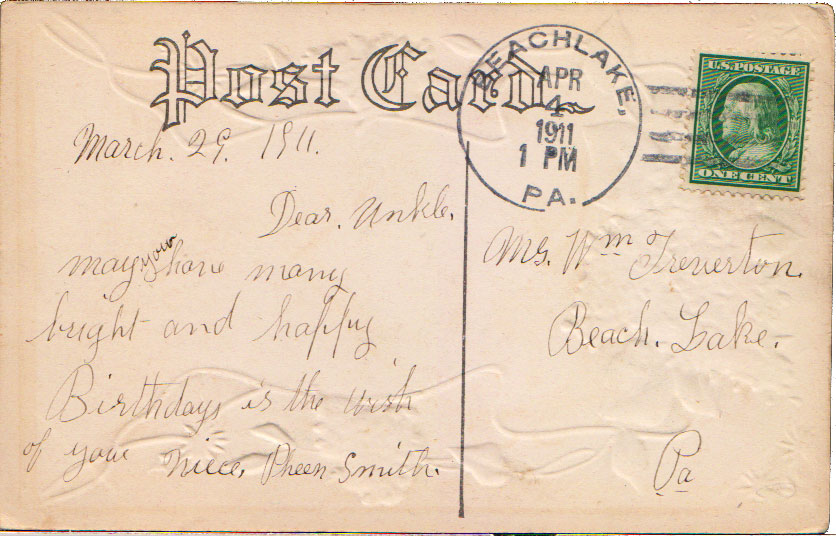 Post Card
BEACHLAKE,
APR
4
1911
1 PM
PA.
U.S. POSTAGE
ONE CENT
March. 29. 1911.
Dear. Unkle.
may your have many
bright and happy
Birthdays is the wish
of your niece, Pheen Smith.
Mr. Wm Treverton.
Beach. Lake.
Pa